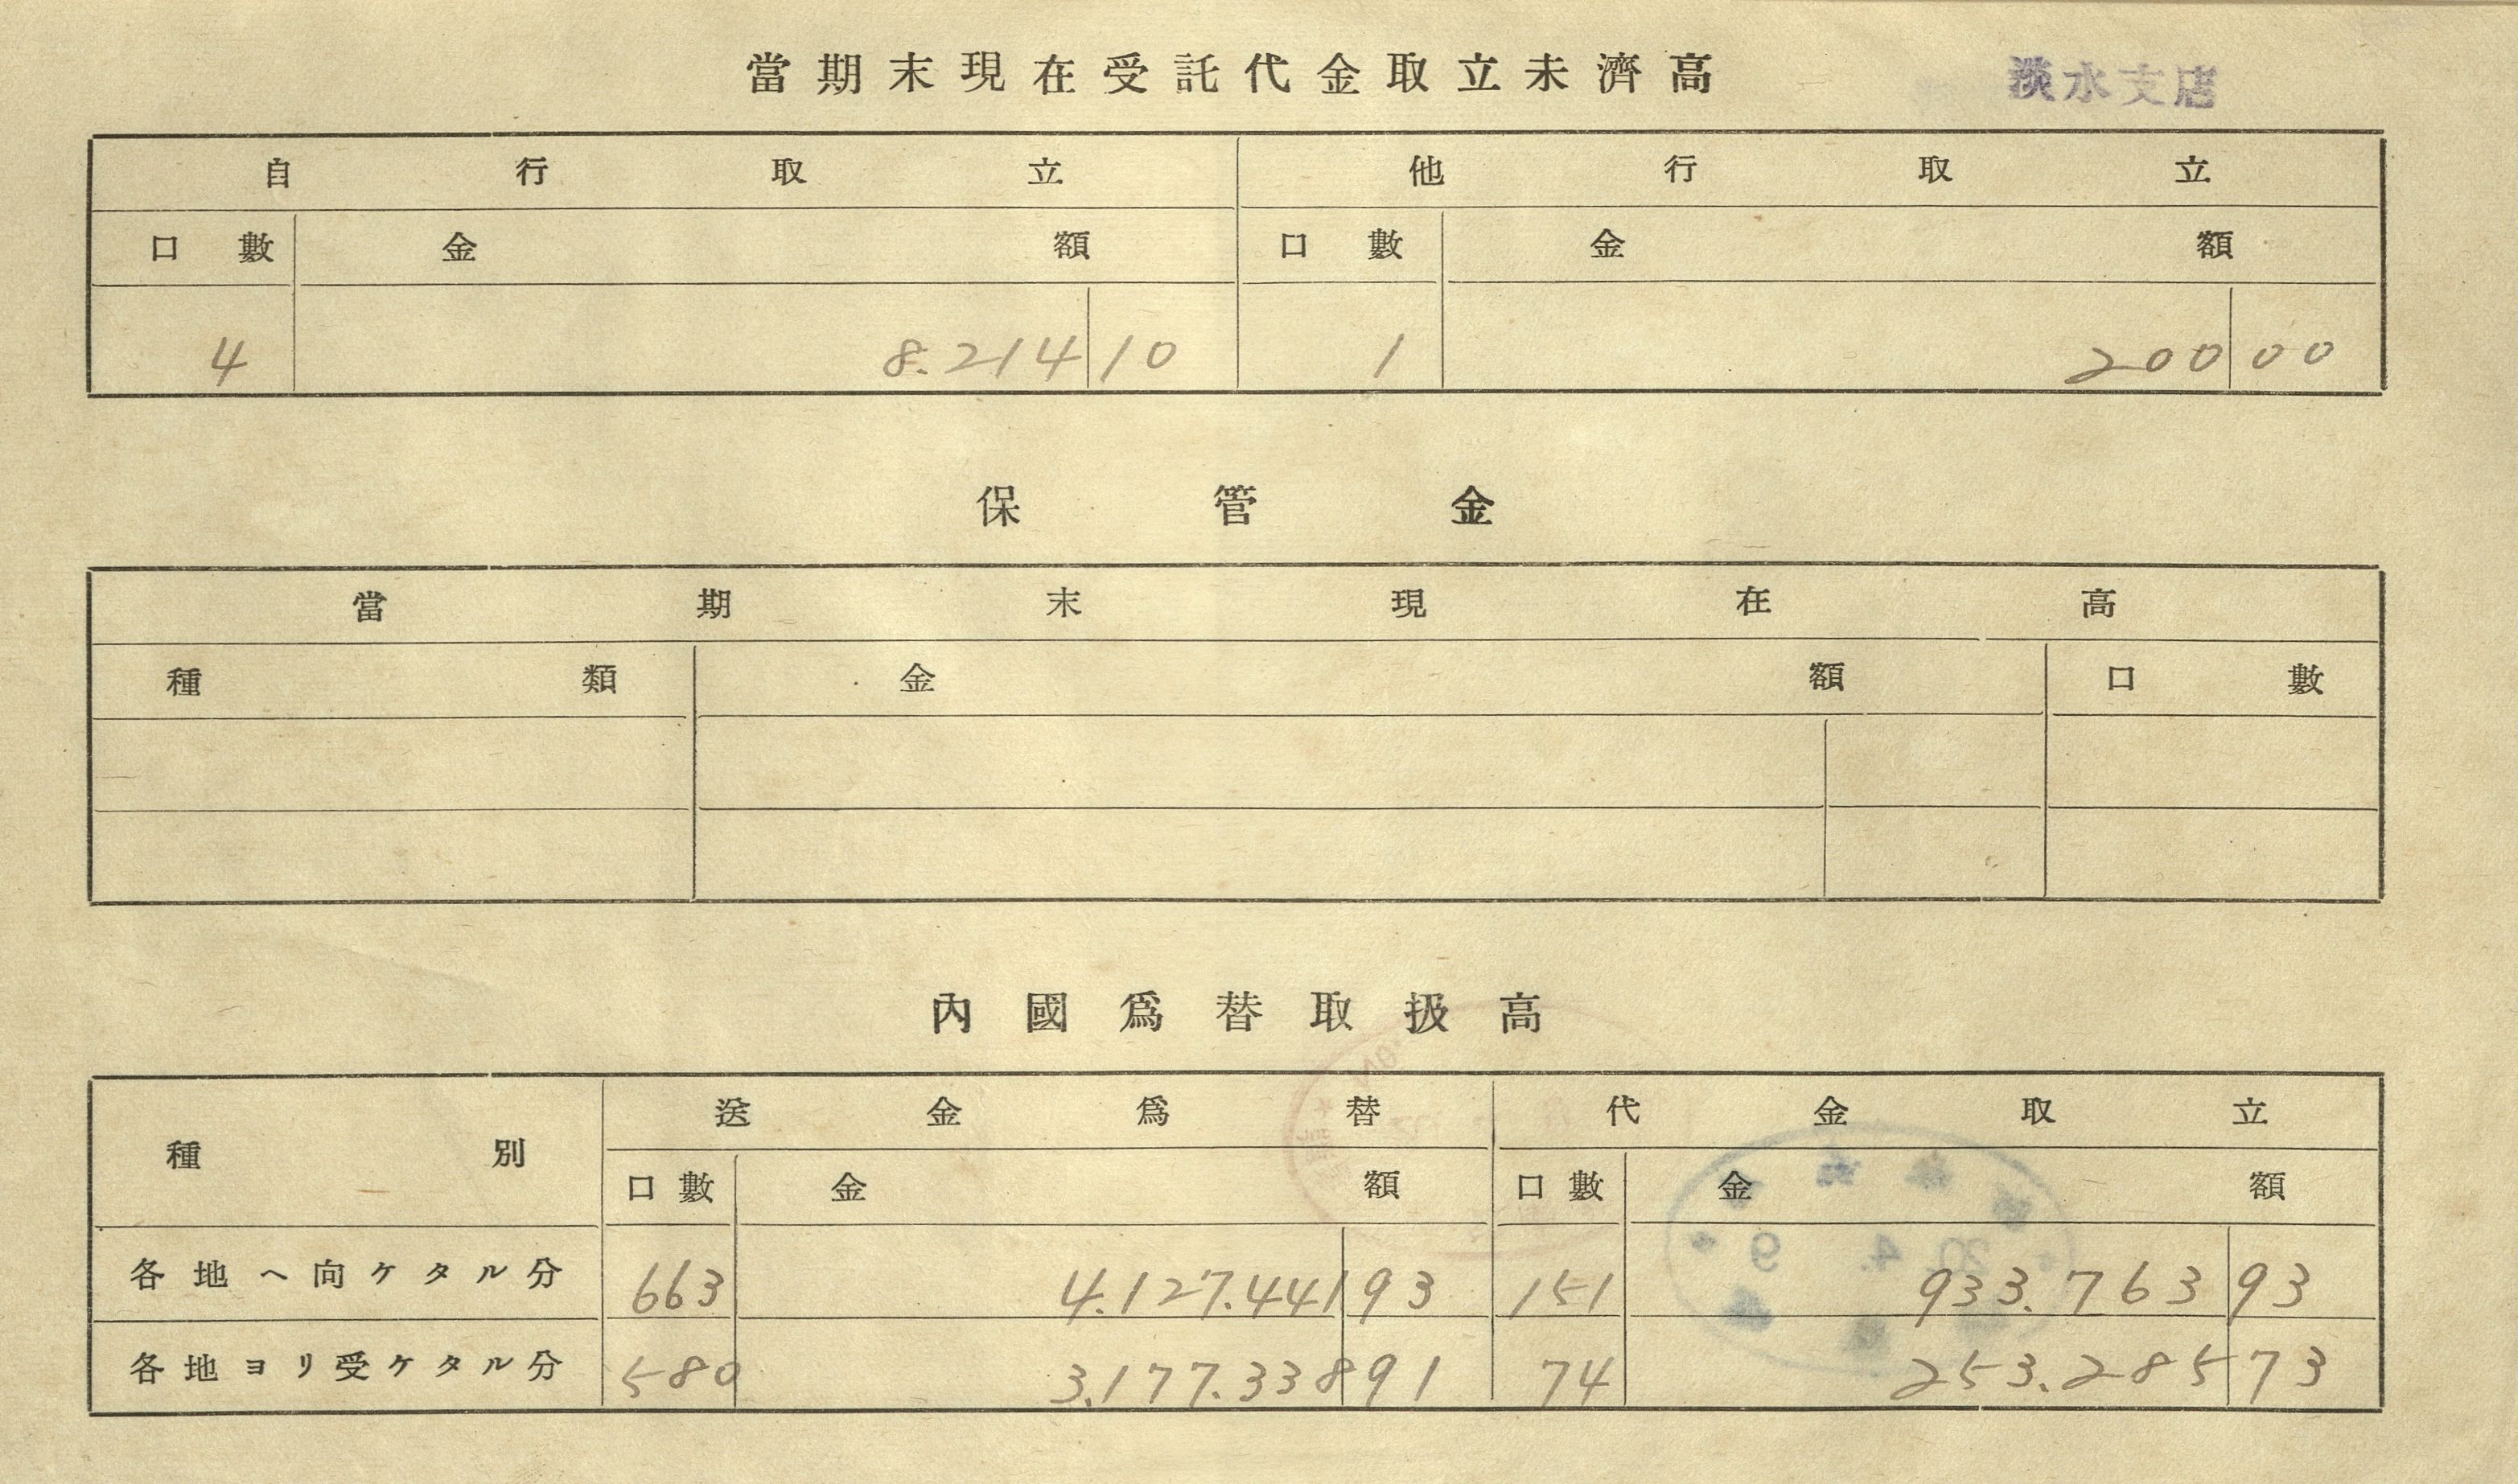 當期末現在受託代金取立未濟高 淡水支店
自行取立 他行取立
口數 金額 口數 金額
4 8.214 10 1 200 00
保管金
當期末現在高
種類 金額 口數
內國爲替取扱高
種別 送金爲替 代金取立
口數 金額 口數 金額
各地ヘ向ケタル分 663 4.127.441 93 151 933.763 93
各地ヨリ受ケタル分 580 3.177.338 91 74 253.285 73